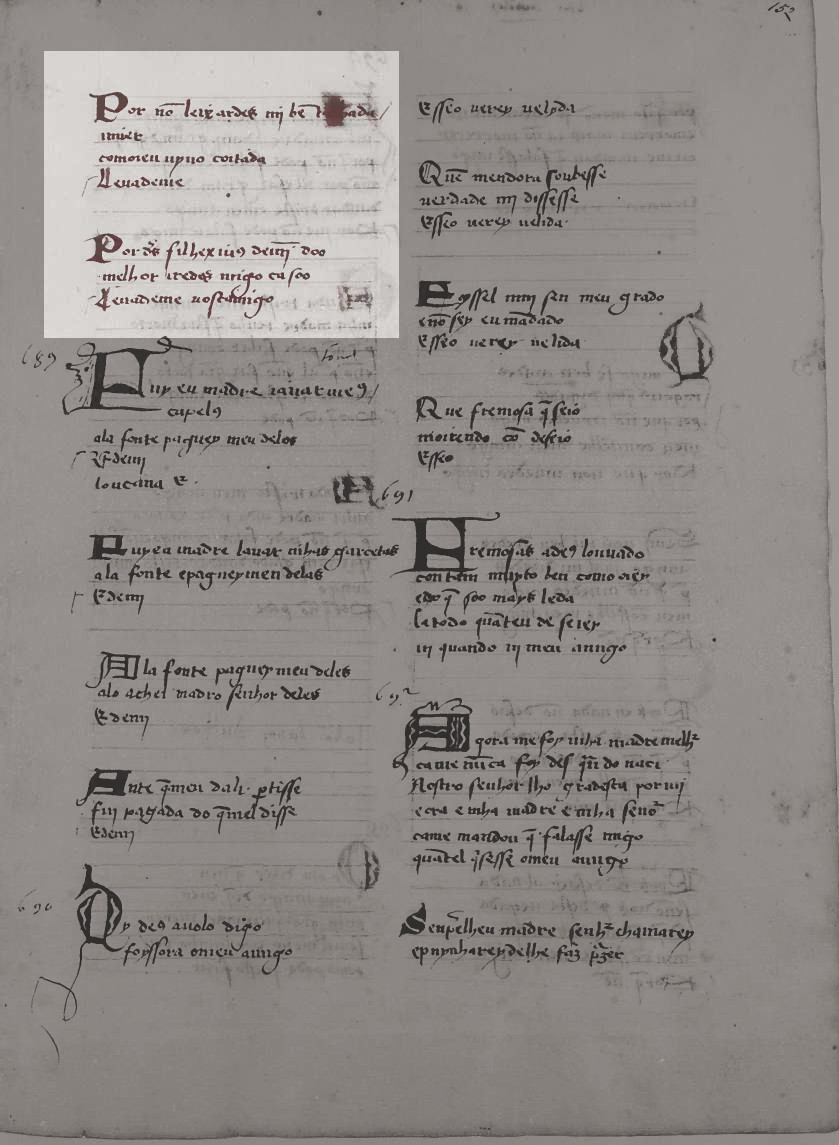 152
Por nō leixardes mj bē
uiuer
comoieu uyuo coitada
Leuademe
Por d̄s filhexiu9 demj̄ doo
melhor iredes migo ca soo
Leuademe uostamigo
689
Fuy eu madre lauar me9
capel9
ala fonte paguey meu delos
Edemj
louçana E
Fuy ea madre lauar mhas garcetas
ala fonte epagueymeu delas
Edemj
Ala fonte paguey meu deles
alo achei madro senhor deles
Edemj
Ante q̄meu dali ꝑtisse
fui pagada do q̄mel disse
Edemj
690
Oy de9 auolo digo
foyssora omeu amigo
Esseo uerey uelyda
Quē mendora soubesse
uerdade mi dissesse
Esseo uerey uelida
Foyssel mui sen meu grado
enō sey eu mādado
Esseo uerey uelida
Que fremosa q̄ seio
moirendo cō deseio
Esseo
691
Fremosas ade9 louuado
con tem muyto ben como oiey
edo q̄ soo mays leda
ca todo quāteu deseiey
ui quando ui meu amigo
692
Agora me foy mha madre melhr̄
ca me nūca foy des q̄n do naci
Nostro senhor lho gradesca por mi
eora e mha madre e mha senōr
came mandou q̄ falasse migo
quātel q̄sesse omeu amigo
Senp̄ lheu madre senhr̄ chamarey
epunharey delhe faz̄ p̄zer